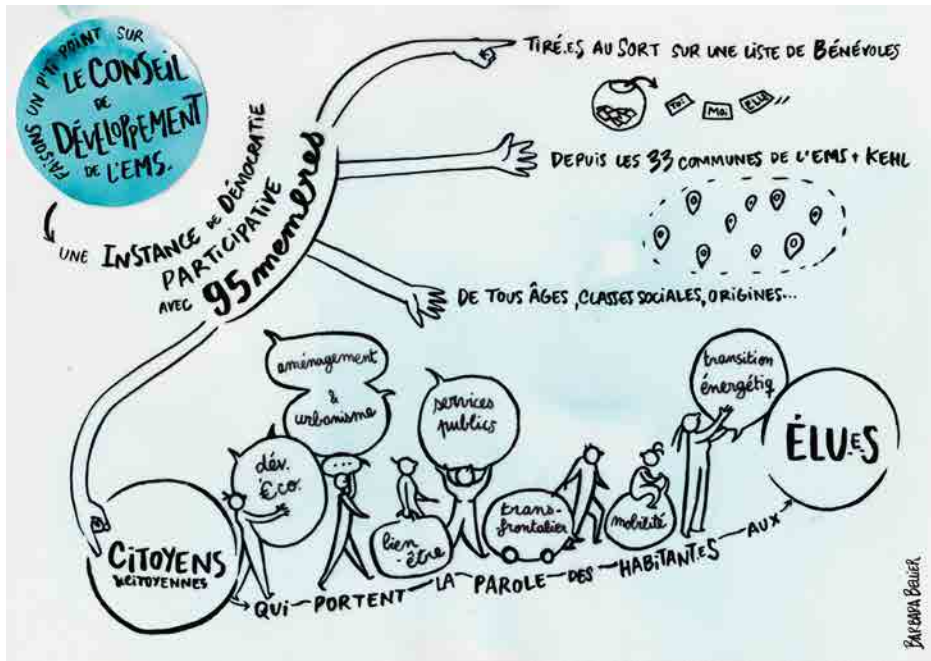 FAISONS UN P'TI POINT SUR
LE CONSEIL
DE
DÉVELOPPEMENT
DE L'EMS.
UNE INSTANCE DE DÉMOCRATIE
PARTICIPATIVE
AVEC 95 membres
TIRÉ.ES AU SORT SUR UNE LISTE DE BÉNÉVOLES
Toi
Moi
ELLE
DEPUIS LES 33 COMMUNES DE L'EMS + KEHL
DE TOUS ÂGES, CLASSES SOCIALES, ORIGINES...
aménagement
&
urbanisme
dév.
éco.
...
bien
-être
services
publics
trans-
frontalier
mobilité
transition
énergétiq
CITOYENS
&CITOYENNES
QUI PORTENT LA PAROLE DES HABITANT.ES AUX
ÉLU.ES
BARBARA BELLIER